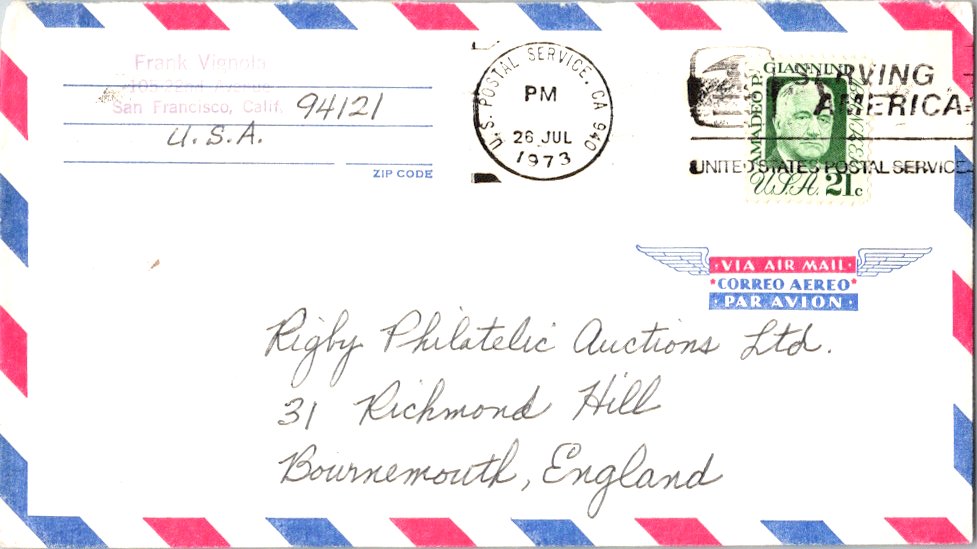 Frank Vignola
San Francisco, Calif. 94121
U.S.A.
ZIP CODE
U.S. POSTAL SERVICE, CA 940
PM
26 JUL
1973
SERVING
AMERICA
UNITED STATES POSTAL SERVICE
AMADEO P. GIANNINI
U.S.A. 21c
VIA AIR MAIL
CORREO AEREO
PAR AVION
Rigby Philatelic Auctions Ltd.
31 Richmond Hill
Bournemouth, England